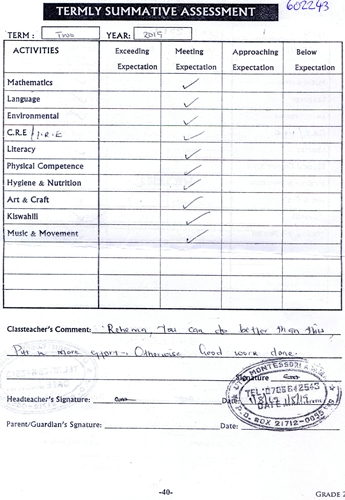 TERMLY SUMMATIVE ASSESSMENT 602243
TERM : Two YEAR: 2019
ACTIVITIES Exceeding Expectation Meeting Expectation Approaching Expectation Below Expectation
Mathematics ✓
Language ✓
Environmental ✓
C.R.E / I.R.E ✓
Literacy ✓
Physical Competence ✓
Hygiene & Nutrition ✓
Art & Craft ✓
Kiswahili ✓
Music & Movement ✓
Classteacher's Comment: Rehema, You can do better than this,
Put in more effort. Otherwise Good work done.
Signature
MONTESSORI
Headteacher's Signature: Date:
TEL: 0706642543
DATE
P.O. BOX 21712-00
Parent/Guardian's Signature: Date:
-40-
GRADE 2